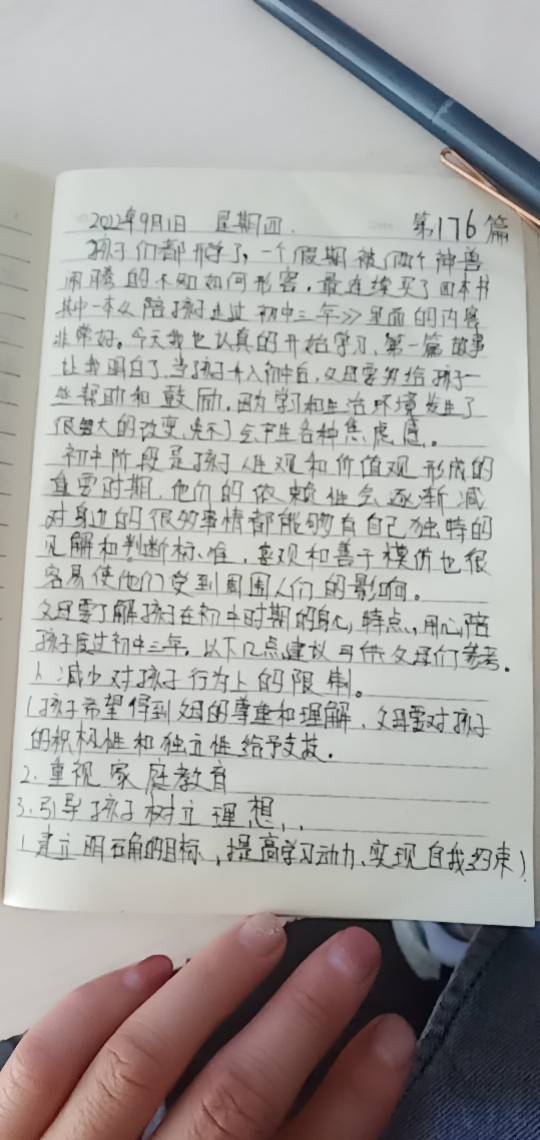 2022年9月1日 星期四. 第176篇
孩子们都开学了，一个假期被两个神兽
闹腾的不知如何形容，最连续买了四本书
其中一本《陪孩子走过初中三年》里面的内容
非常好。今天我也认真的开始学习、第一篇故事
让我明白了，当孩子升入初中后，父母要努给孩子一
些帮助和鼓励，因为学习和生活环境发生了
很大的改变，免不了会产生各种焦虑感。
初中阶段是孩子人生观和价值观形成的
重要时期，他们的依赖性会逐渐减
对身边的很多事情都能够有自己独特的
见解和判断标准，客观和善于模仿也很
容易使他们受到周围人们的影响。
父母要了解孩子在初中时期的身心特点，用心陪
孩子度过初中三年，以下几点建议可供父母们参考。
1、减少对孩子行为上的限制。
(孩子希望得到父母的尊重和理解，父母要对孩子
的积极性和独立性给予支持.
2.重视家庭教育
3.引导孩子树立理想..
(建立明确的目标，提高学习动力、实现自我约束)